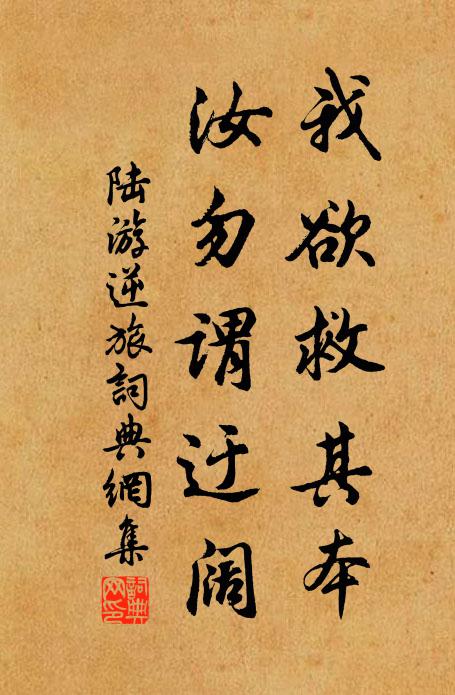 我欲救其本
汝勿谓迂阔
陆游逆旅詞典網集
詞典网印